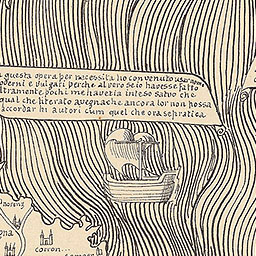 questa opera per necessita ho convenuto usar nomi
moderni e vulgati perche al vero se io havesse fatto
altramente pochi me haveria inteso salvo che
qual che literato avegna che ancora lor non possa
accordar hi autori cum quel che ora se pratica
coron